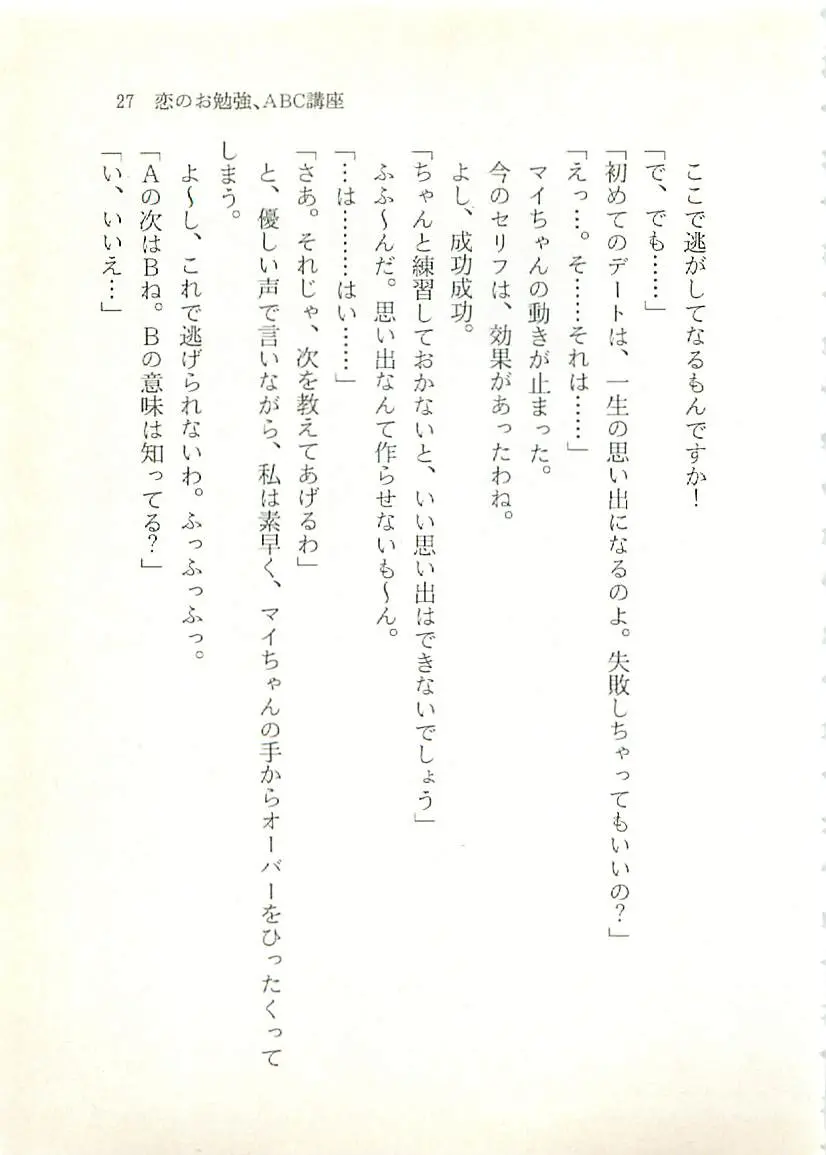 27 恋のお勉強、ABC講座
ここで逃がしてなるもんですか!
「で、でも……」
「初めてのデートは、一生の思い出になるのよ。失敗しちゃってもいいの?」
「えっ…。そ……それは……」
マイちゃんの動きが止まった。
今のセリフは、効果があったわね。
よし、成功成功。
「ちゃんと練習しておかないと、いい思い出はできないでしょう」
ふふ〜んだ。思い出なんて作らせないも〜ん。
「…は………はい……」
「さあ。それじゃ、次を教えてあげるわ」
と、優しい声で言いながら、私は素早く、マイちゃんの手からオーバーをひったくって
しまう。
よ〜し、これで逃げられないわ。ふっふっふっ。
「Aの次はBね。Bの意味は知ってる?」
「い、いいえ…」